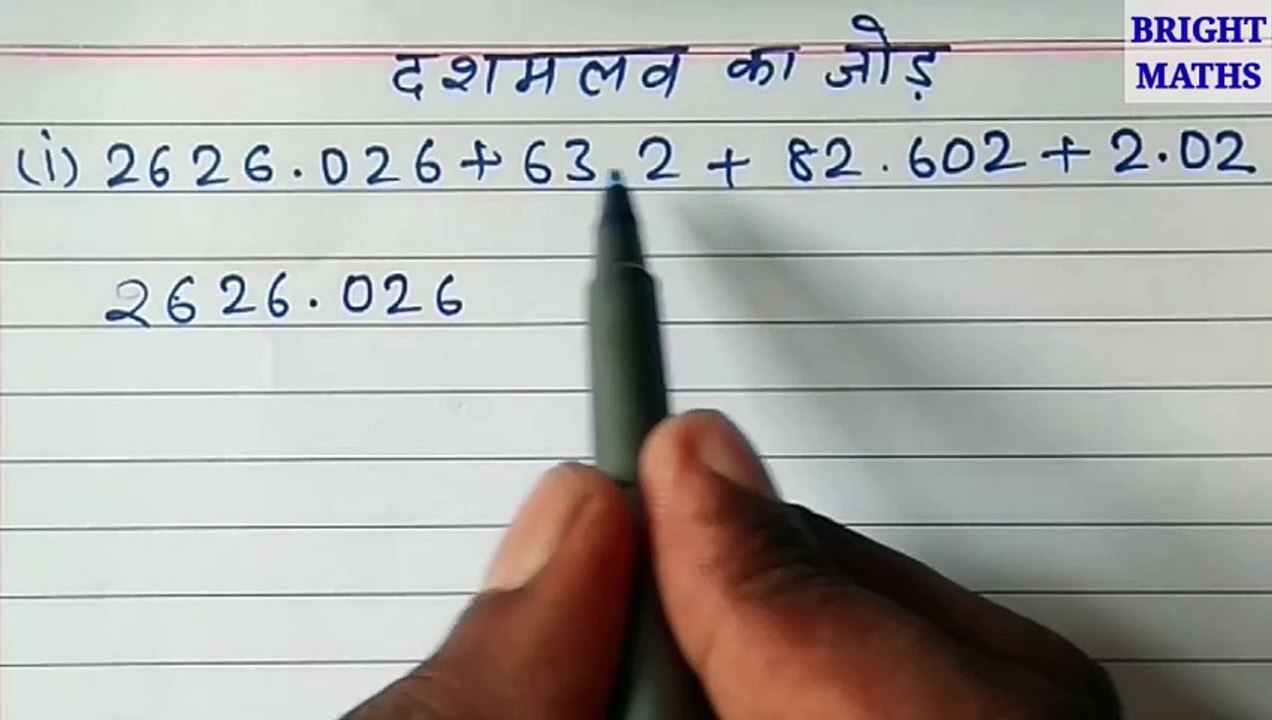 BRIGHT
MATHS
दशमलव का जोड़
(i) 2626.026+63.2 + 82.602+2.02
2626.026